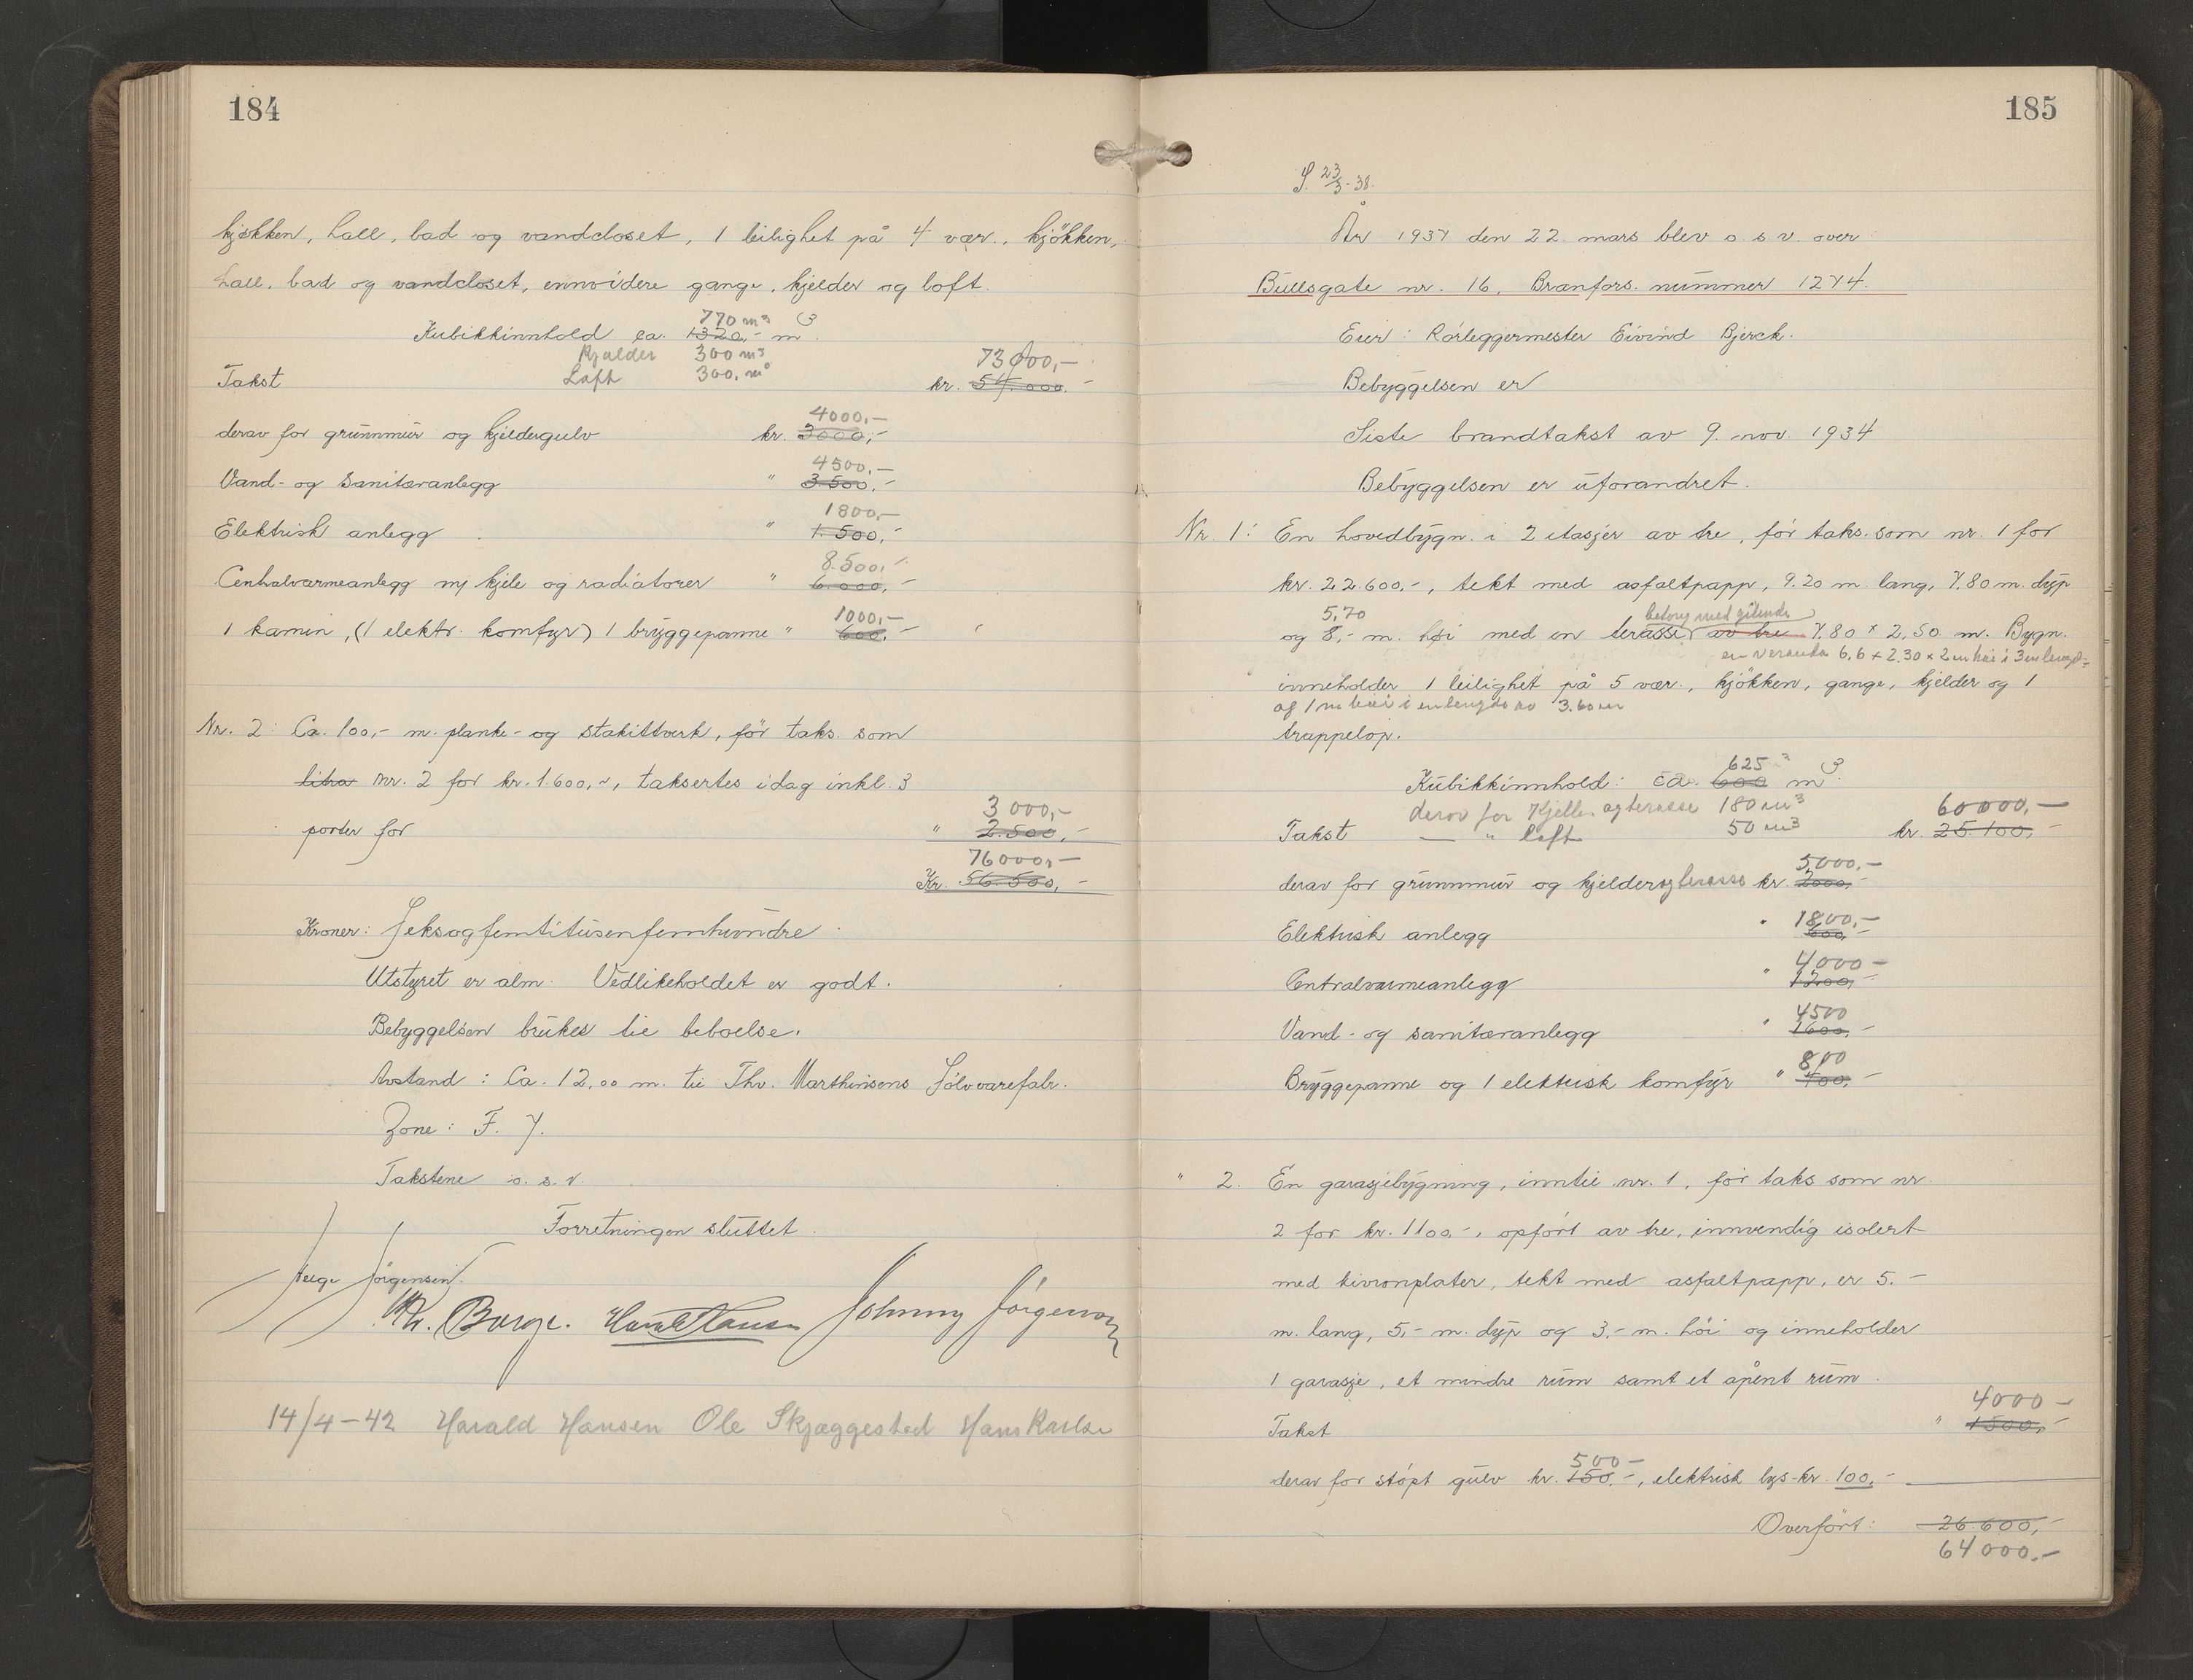 184
kjøkken, hall, bad og vandcloset, 1 leilighet på 4 vær., kjökken,
hall, bad og vandcloset, ennvidere gange, kjelder og loft.
770 m³
Kubikkinnhold ca. 1320,- m³.
Kjælder 300 m³
Loft 300, m³
73000,-
Takst kr. 54.000.-
4000,-
derav for grunnmur og kjeldergulv kr. 3000,-
4500,-
Vand- og sanitæranlegg " 3.500,-
1800,-
Elektrisk anlegg " 1.500,-
8.500,-
Centralvarmeanlegg m/ kjele og radiatorer " 6.000,-
1000,-
1 kamin, (1 elektr. komfyr) 1 bryggepanne " 600,-
Nr. 2: Ca. 100,- m. planke- og stakittverk, för taks. som
litra nr. 2 for kr. 1.600,-, taksertes idag inkl. 3
3000,-
porter for " 2.500,-
76000,-
Kr. 56.500,-
Kroner: Seksogfemtitusenfemhundre
Utstyret er alm. Vedlikeholdet er godt.
Bebyggelsen brukes til beboelse.
Avstand: Ca. 12,00 m. til Thv. Marthinsens Sölvvarefabr.
Zone: F. 7.
Takstene o. s. v.
Forretningen sluttet.
Helge Jörgensen.
Kr. Borge. Harald Hansen Johnny Jörgensen
14/4-42 Harald Hansen Ole Skjæggestad Hans Karlsen
185
S. 23/3-38.
År 1937 den 22. mars blev o. s. v. over
Bullsgate nr. 16, Branfors. nummer 1274.
Eier: Rörleggermester Eivind Bjerck.
Bebyggelsen er
Siste brandtakst av 9. nov. 1934
Bebyggelsen er uforandret.
Nr. 1: En hovedbygn. i 2 etasjer av tre, för taks. som nr. 1 for
kr. 22.600.-, tekt med asfaltpapp, 9.20 m. lang, 7.80 m. dyp
5,70 betong med gelender
og 8,- m. höi med en terasse av tre 7.80 x 2,50 m. Bygn.
en veranda 6,6 x 2.30 x 2 m höi i 3 m lengde
inneholder 1 leilighet på 5 vær., kjökken, gange, kjelder og 1
og 1 m höi i en lengde av 3.60 m
trappelöp.
625
Kubikkinnhold: ca. 600 m³.
derav for Kjeller og terasse 180 m³
60000,-
Takst — " loft 50 m³ kr. 25.100,-
5000,-
derav for grunnmur og kjelder og terasse kr. 2000,-
1800,-
Elektrisk anlegg " 600,-
4000-
Centralvarmeanlegg " 1200,-
4500
Vand- og sanitæranlegg " 1600,-
800
Bryggepanne og 1 elektrisk komfyr " 400,-
" 2. En garasjebygning, inntil nr. 1, för taks som nr.
2 for kr. 1100.-, opfört av tre, innvendig isolert
med tivronplater, tekt med asfaltpapp, er 5.-
m. lang, 5,- m. dyp og 3,- m. höi og inneholder
1 garasje, et mindre rum samt et åpent rum.
4000-
Takst " 1500,-
500-
derav for stöpt gulv kr. 150,-, elektrisk lys kr. 100,-
Overfört: 26.600,-
64000,-